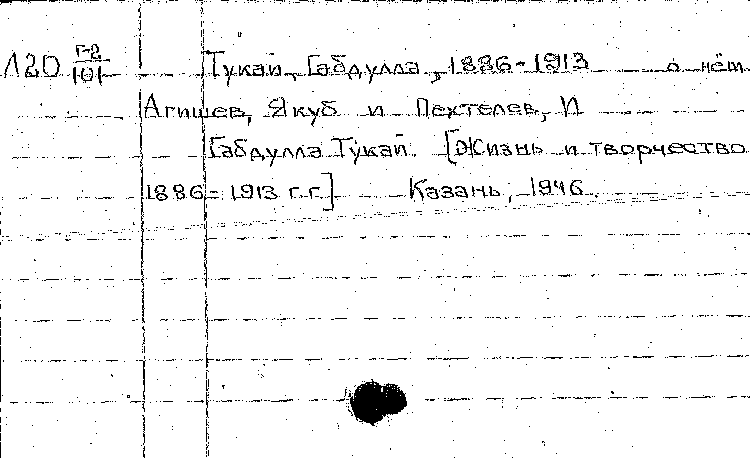 Л20 Г-2/101 Тукай, Габдулла, 1886-1913 о нём
Агишев, Якуб и Пехтелев, И
Габдулла Тукай. [Жизнь и творчество
1886-1913 г.г.] Казань, 1946.